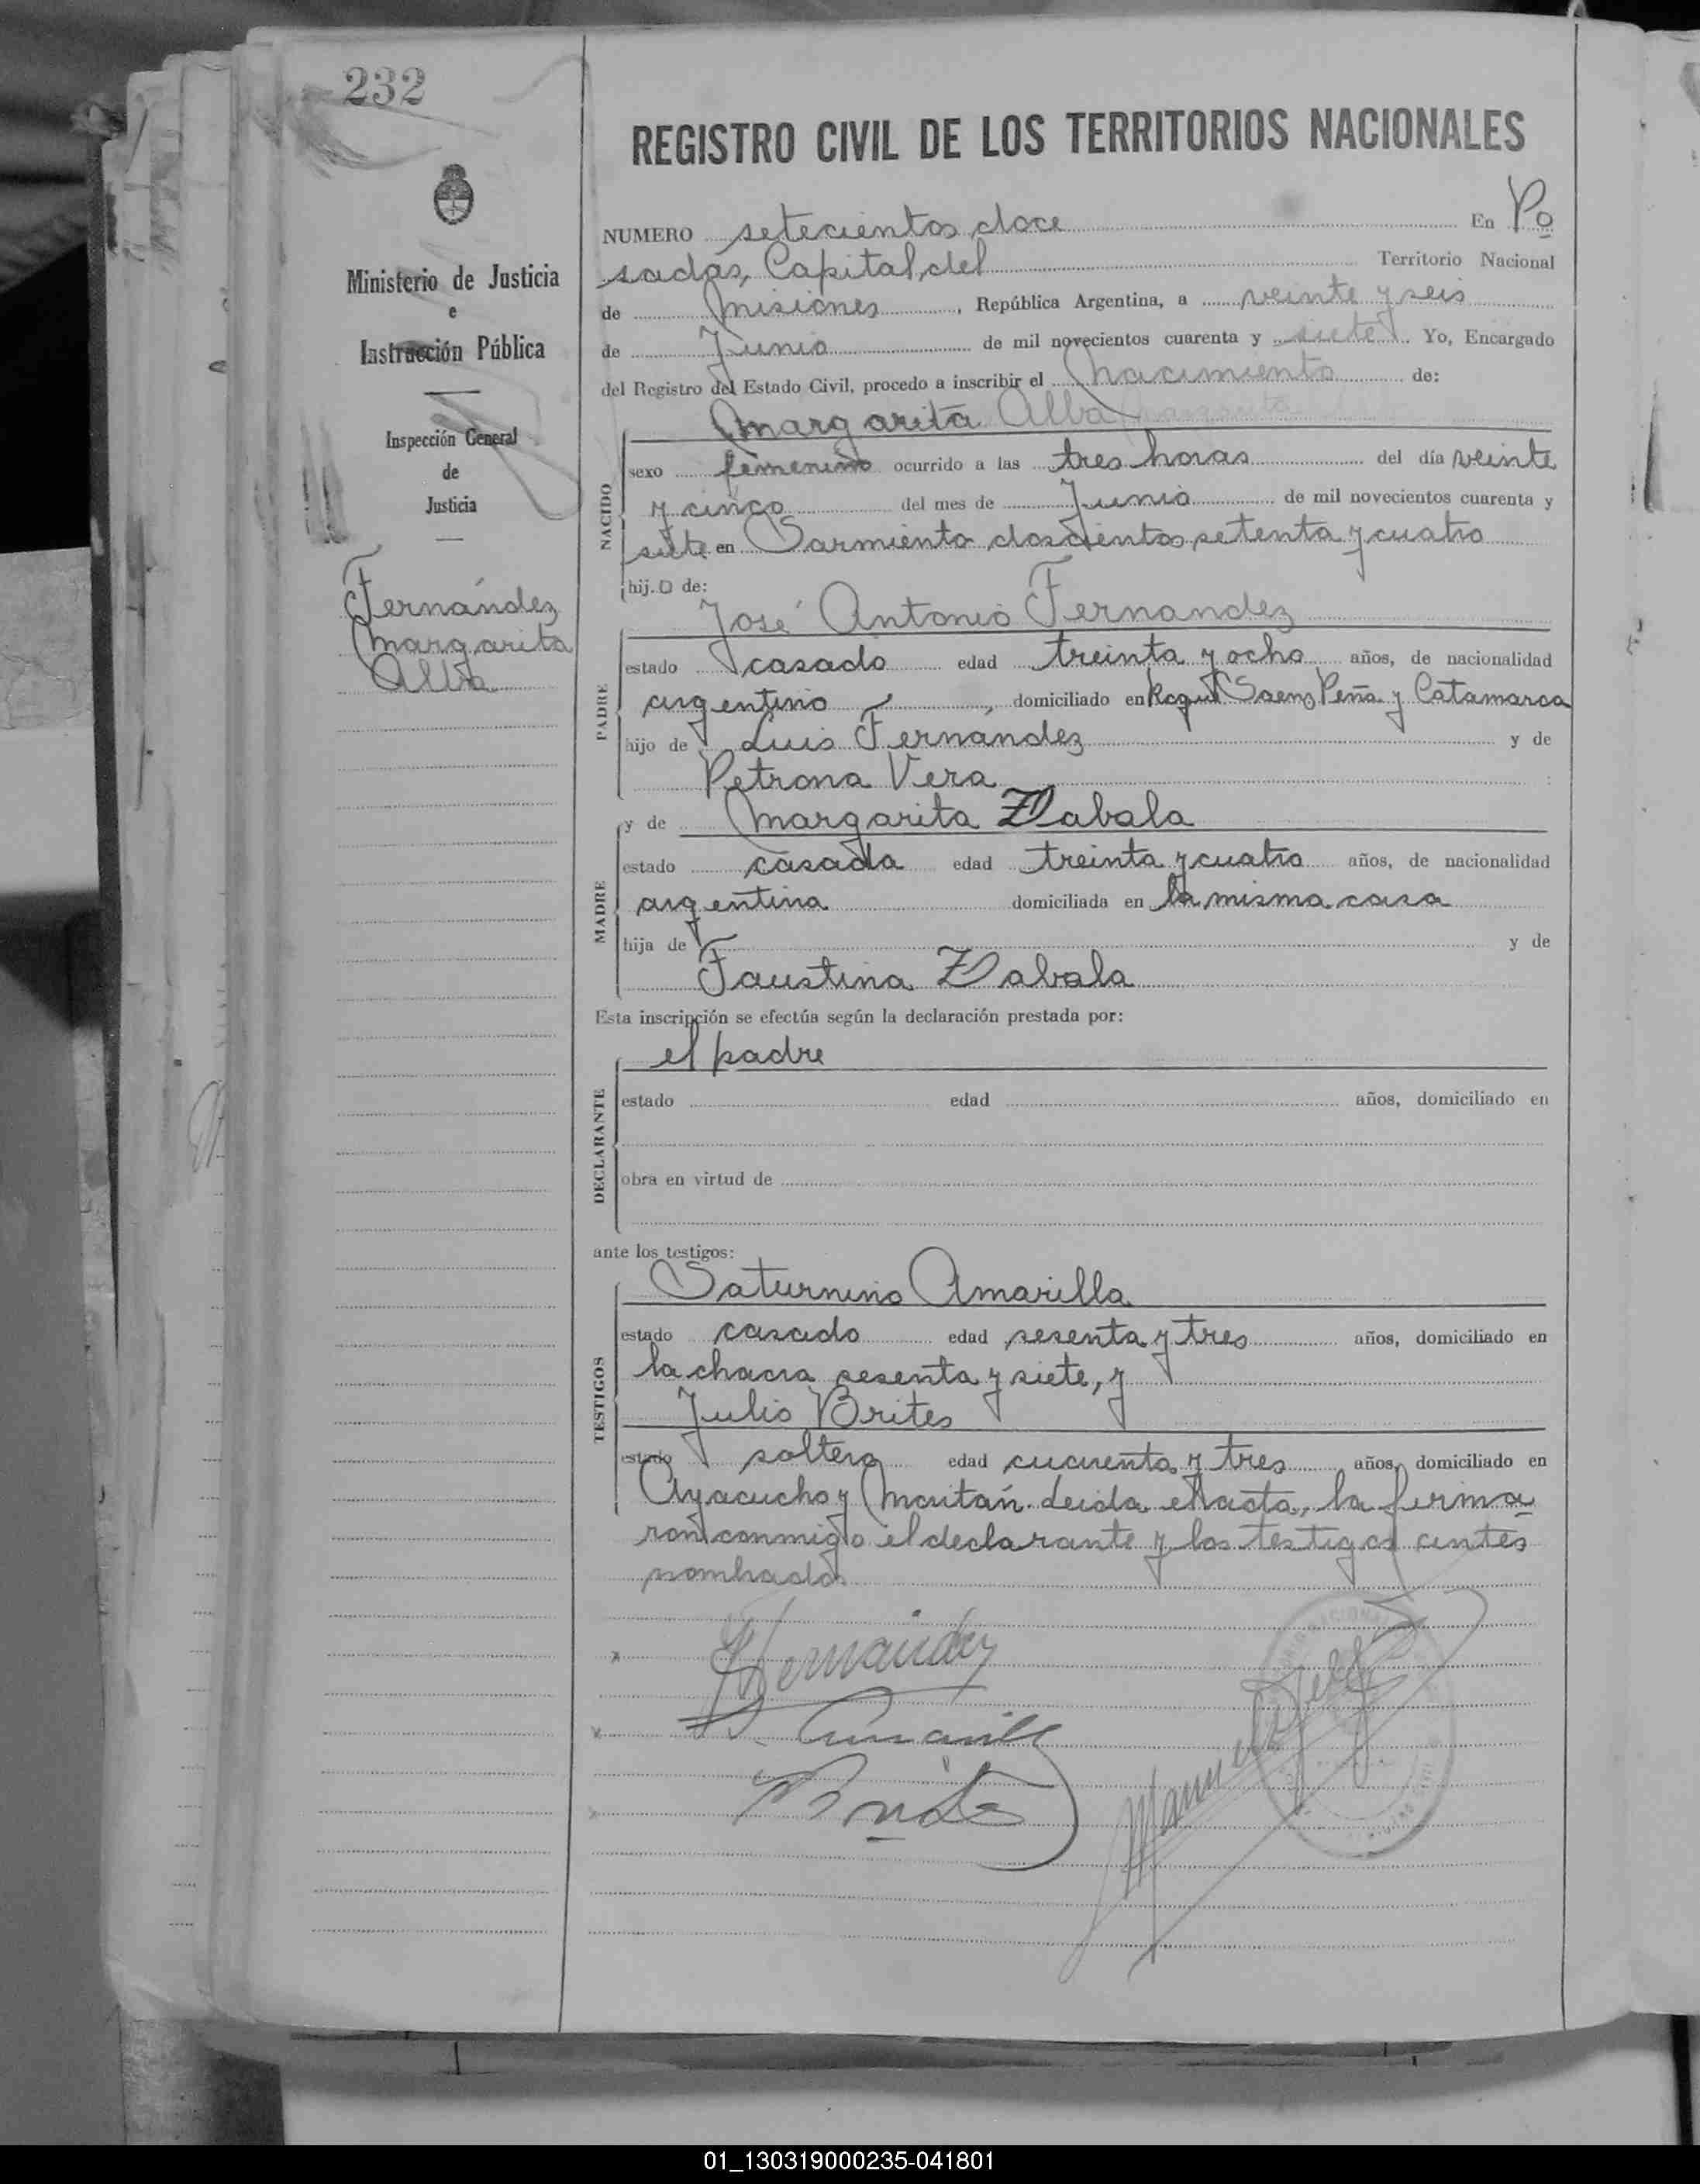 232
REGISTRO CIVIL DE LOS TERRITORIOS NACIONALES
Ministerio de Justicia
e
Instrucción Pública
Inspección General
de
Justicia
Fernández
Margarita
Alba
NUMERO setecientos doce En Po
sadas, Capital del Territorio Nacional
de Misiones, República Argentina, a veinte y seis
de Junio de mil novecientos cuarenta y siete. Yo, Encargado
del Registro del Estado Civil, procedo a inscribir el nacimiento de:
Margarita Alba
NACIDO
sexo femenino ocurrido a las tres horas del día veinte
y cinco del mes de Junio de mil novecientos cuarenta y
siete en Sarmiento doscientos setenta y cuatro
hij.o de:
José Antonio Fernandez
PADRE
estado casado edad treinta y ocho años, de nacionalidad
argentino, domiciliado en Roque Saenz Peña y Catamarca
hijo de Luis Fernández y de
Petrona Vera
y de Margarita Zabala
MADRE
estado casada edad treinta y cuatro años, de nacionalidad
argentina domiciliada en la misma casa
hija de y de
Faustina Zabala
Esta inscripción se efectúa según la declaración prestada por:
el padre
DECLARANTE
estado edad años, domiciliado en
obra en virtud de
ante los testigos:
Saturnino Amarilla
TESTIGOS
estado casado edad sesenta y tres años, domiciliado en
la chacra sesenta y siete, y
Julio Brites
estado soltero edad cuarenta y tres años, domiciliado en
Ayacucho y Maitán. Leida el acta, la firma
ron conmigo el declarante y los testigos antes
nombrados
Fernández
S. Amarilla
Brites
Manuel
01_130319000235-041801